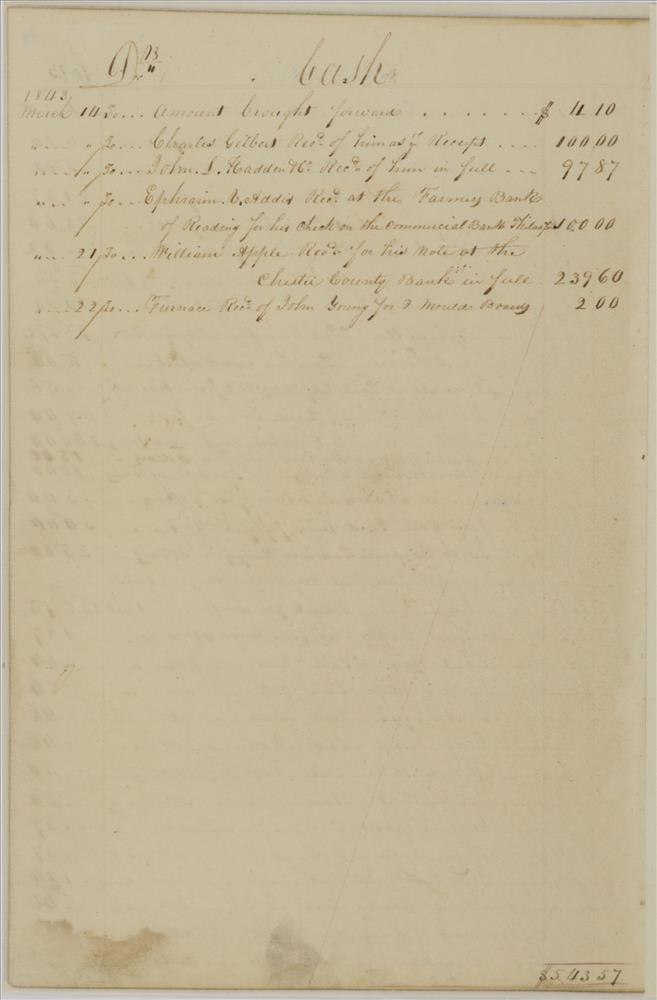 Dr. Cash
1843
March 14 To... Amount brought forward ....... $ 4 10
" " To... Charles Gilbert Recd. of him as pr Receipt .... 100,00
" " To... John S. Hadden & Co Recd. of him in full ... 97 87
" " To... Ephraim Addis Recd. at the Farmers Bank
of Reading for his Check on the Commercial Bank Philada 100 00
" 21 To... William Apple Recd. for his Note at the
Chester County Bank in full 239 60
" 22 To... Furnace Recd. of John Young for 2 Mould Boards 2 00
$543 57